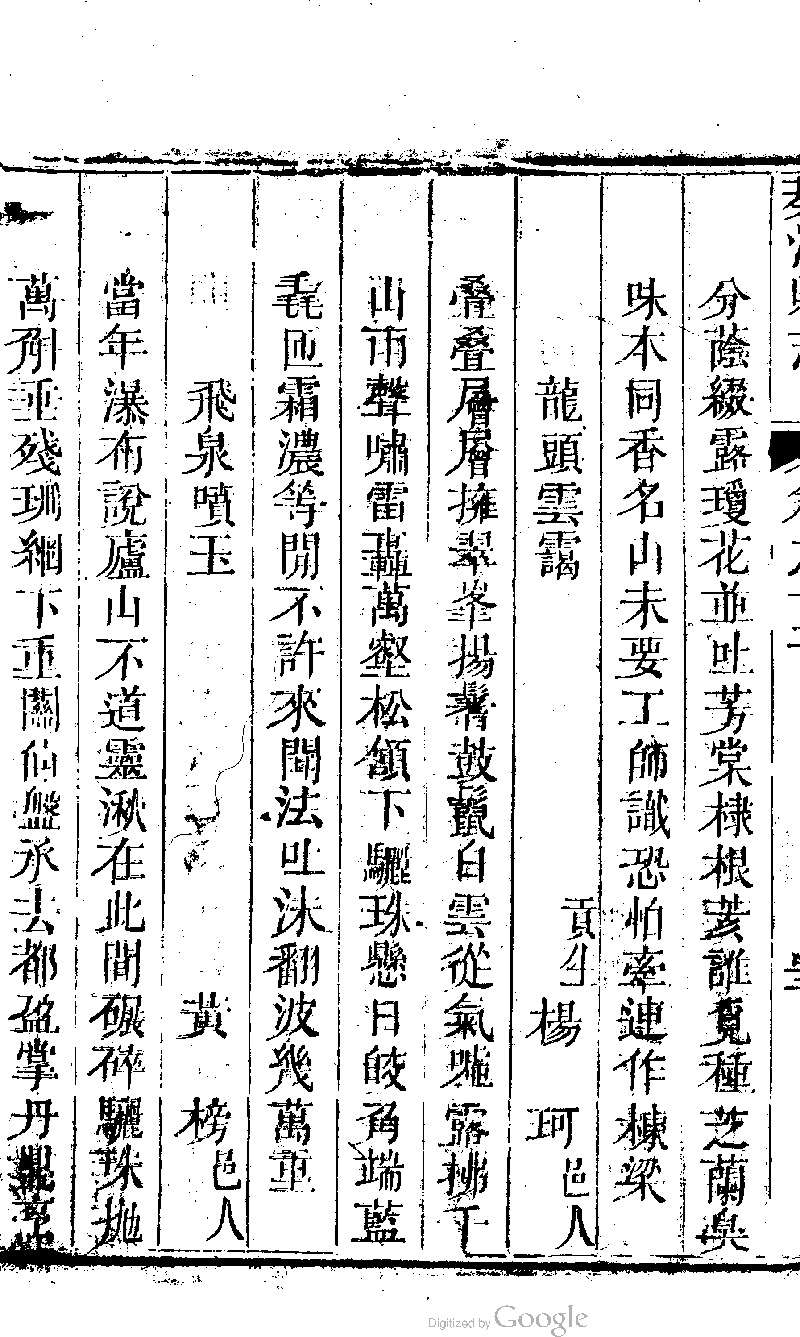 分蔭綴露瓊花並吐芳棠棣根荄誰覓種芝蘭臭
味本同香名山未要工師識恐怕牽連作棟梁
龍頭雲靄 貢生楊 珂邑人
疊疊層層擁翠峯揚鬐鼓鬣白雲從氣噓露拂千
山雨聲嘯雷轟萬壑松頷下驪珠懸日皎角端藍
毛匝霜濃等閒不許來聞法吐沬翻波幾萬重
飛泉噴玉 黃 榜邑人
當年瀑布說廬山不道靈湫在此間碾碎驪珠拋
萬斛垂殘珊網下重關仙盤承去都盈掌丹
Digitized by Google